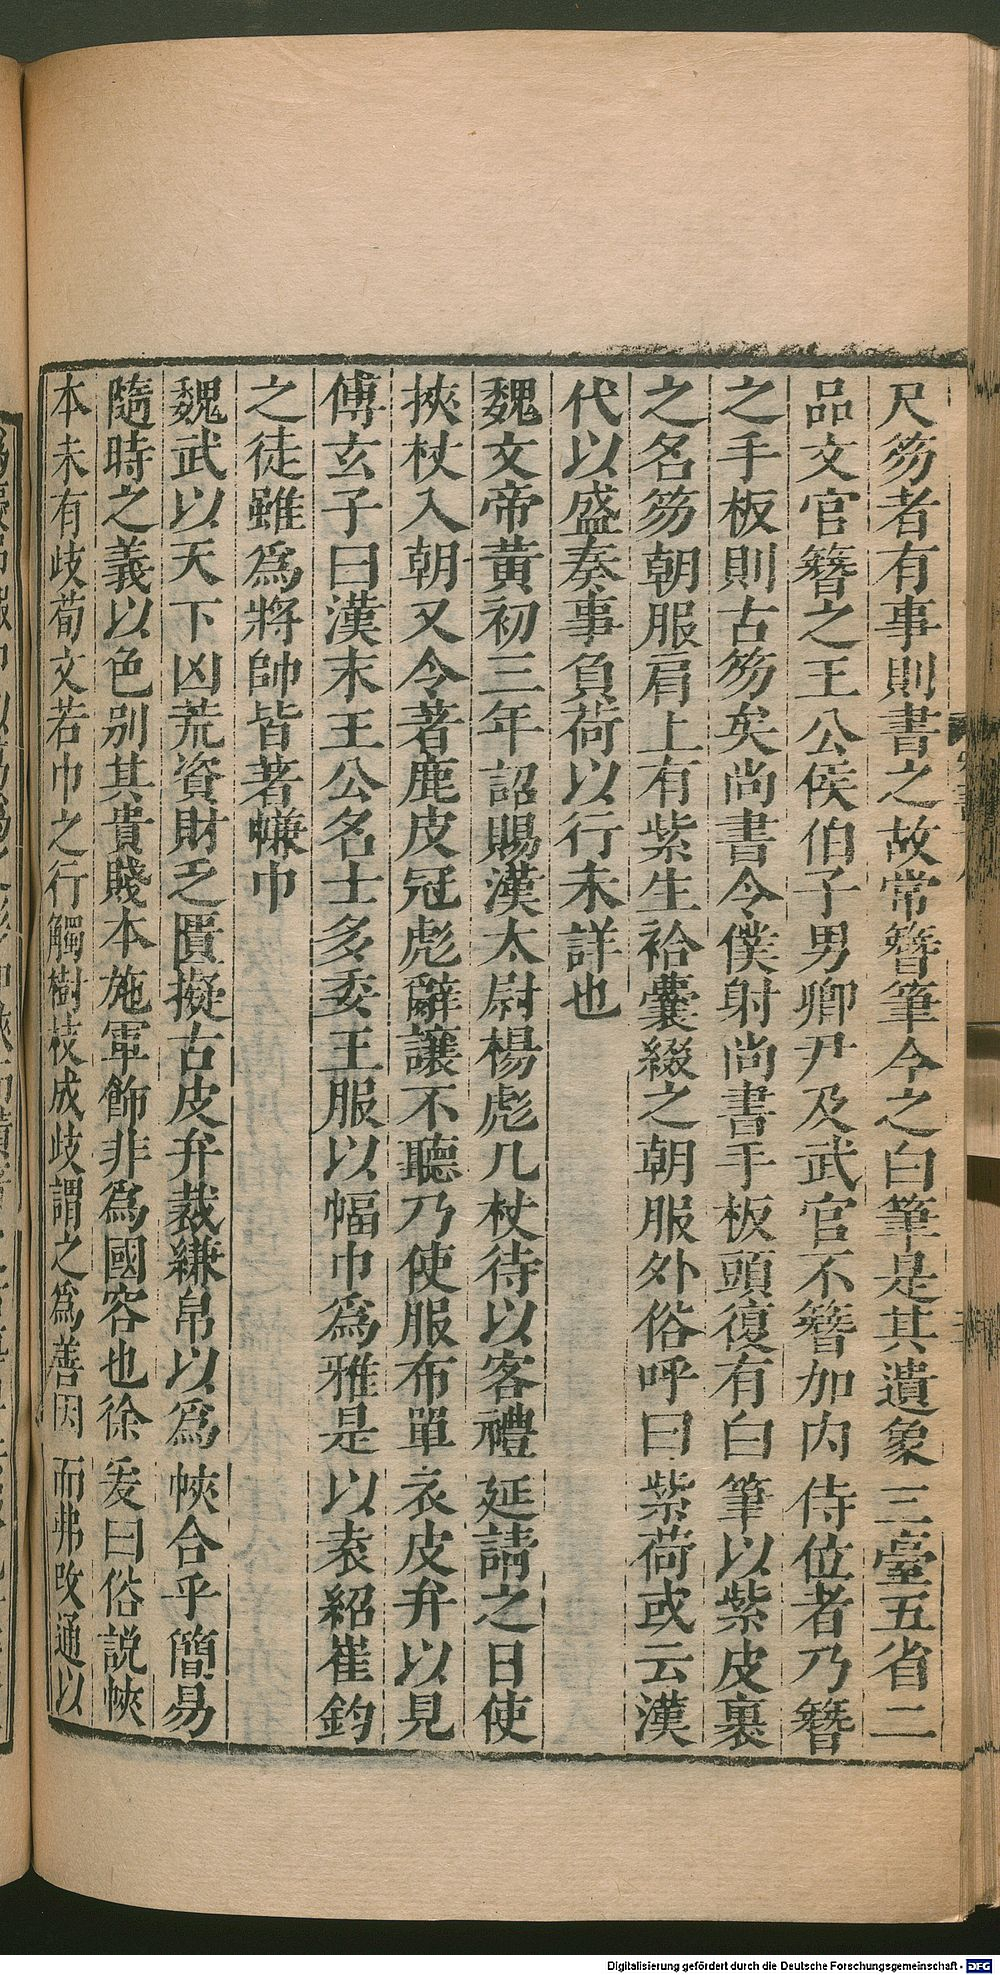 尺笏者有事則書之故常簪筆今之白筆是其遺象三臺五省二
品文官簪之王公侯伯子男卿尹及武官不簪加内侍位者乃簪
之手板則古笏矣尚書令僕射尚書手板頭復有白筆以紫皮裹
之名笏朝服肩上有紫生袷囊綴之朝服外俗呼曰紫荷或云漢
代以盛奏事負荷以行未詳也
魏文帝黃初三年詔賜漢太尉楊彪几杖待以客禮延請之日使
挾杖入朝又令著鹿皮冠彪辭讓不聽乃使服布單衣皮弁以見
傅玄子曰漢末王公名士多委王服以幅巾爲雅是以袁紹崔鈞
之徒雖爲將帥皆著縑巾
魏武以天下凶荒資財乏匱擬古皮弁裁縑帛以爲帢合乎簡易
隨時之義以色別其貴賤本施軍飾非爲國容也徐爰曰俗說帢
本未有歧荀文若巾之行觸樹枝成歧謂之爲善因而弗改通以
Digitalisierung gefördert durch die Deutsche Forschungsgemeinschaft - DFG